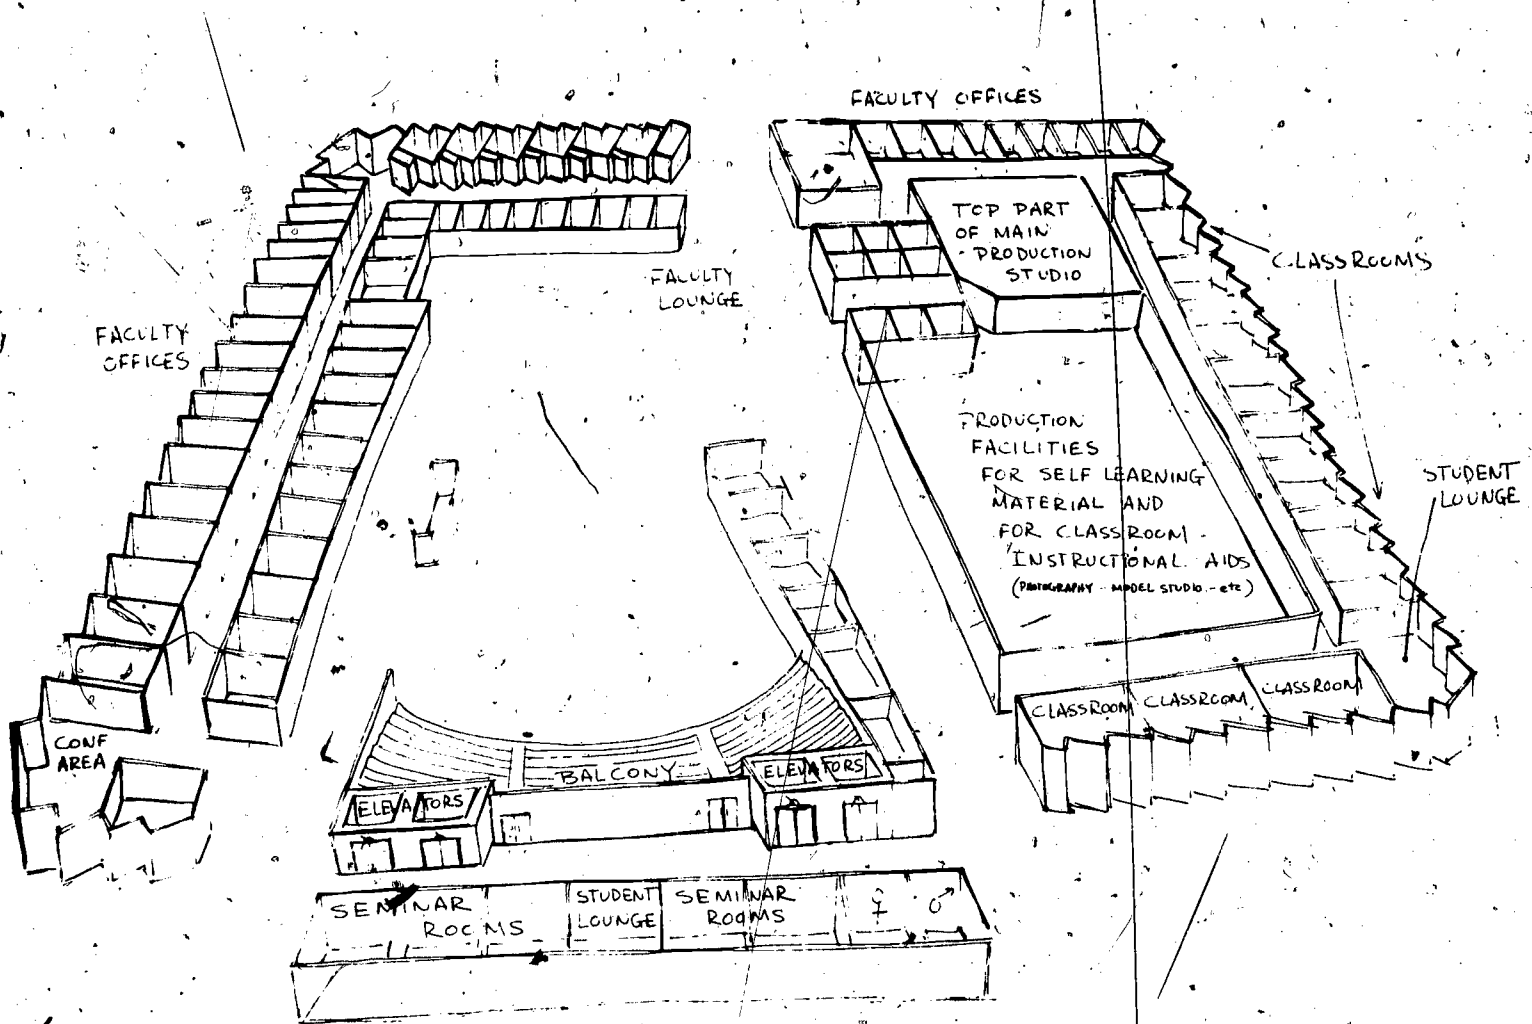 FACULTY OFFICES
TOP PART
OF MAIN
PRODUCTION
STUDIO
CLASSROOMS
FACULTY
LOUNGE
FACULTY
OFFICES
PRODUCTION
FACILITIES
FOR SELF LEARNING
MATERIAL AND
FOR CLASSROOM
INSTRUCTIONAL AIDS
(PHOTOGRAPHY - MODEL STUDIO - etc)
STUDENT
LOUNGE
CLASSROOM CLASSROOM CLASSROOM
CONF
AREA
BALCONY
ELEVATORS
ELEVATORS
SEMINAR
ROOMS
STUDENT
LOUNGE
SEMINAR
ROOMS
♀ ♂